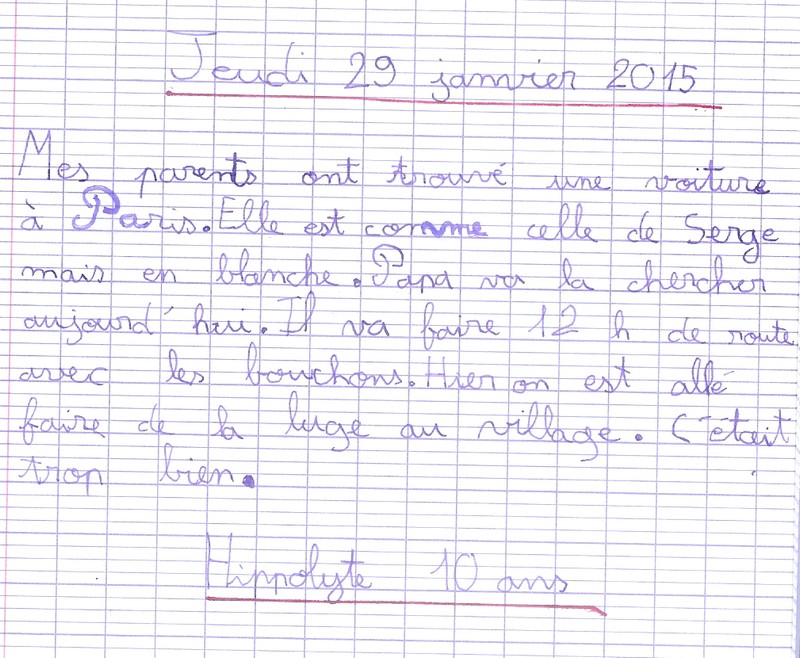 Jeudi 29 janvier 2015
Mes parents ont trouvé une voiture
à Paris. Elle est comme celle de Serge
mais en blanche. Papa va la chercher
aujourd'hui. Il va faire 12 h de route
avec les bouchons. Hier on est allé
faire de la luge au village. C'était
trop bien.
Hippolyte 10 ans